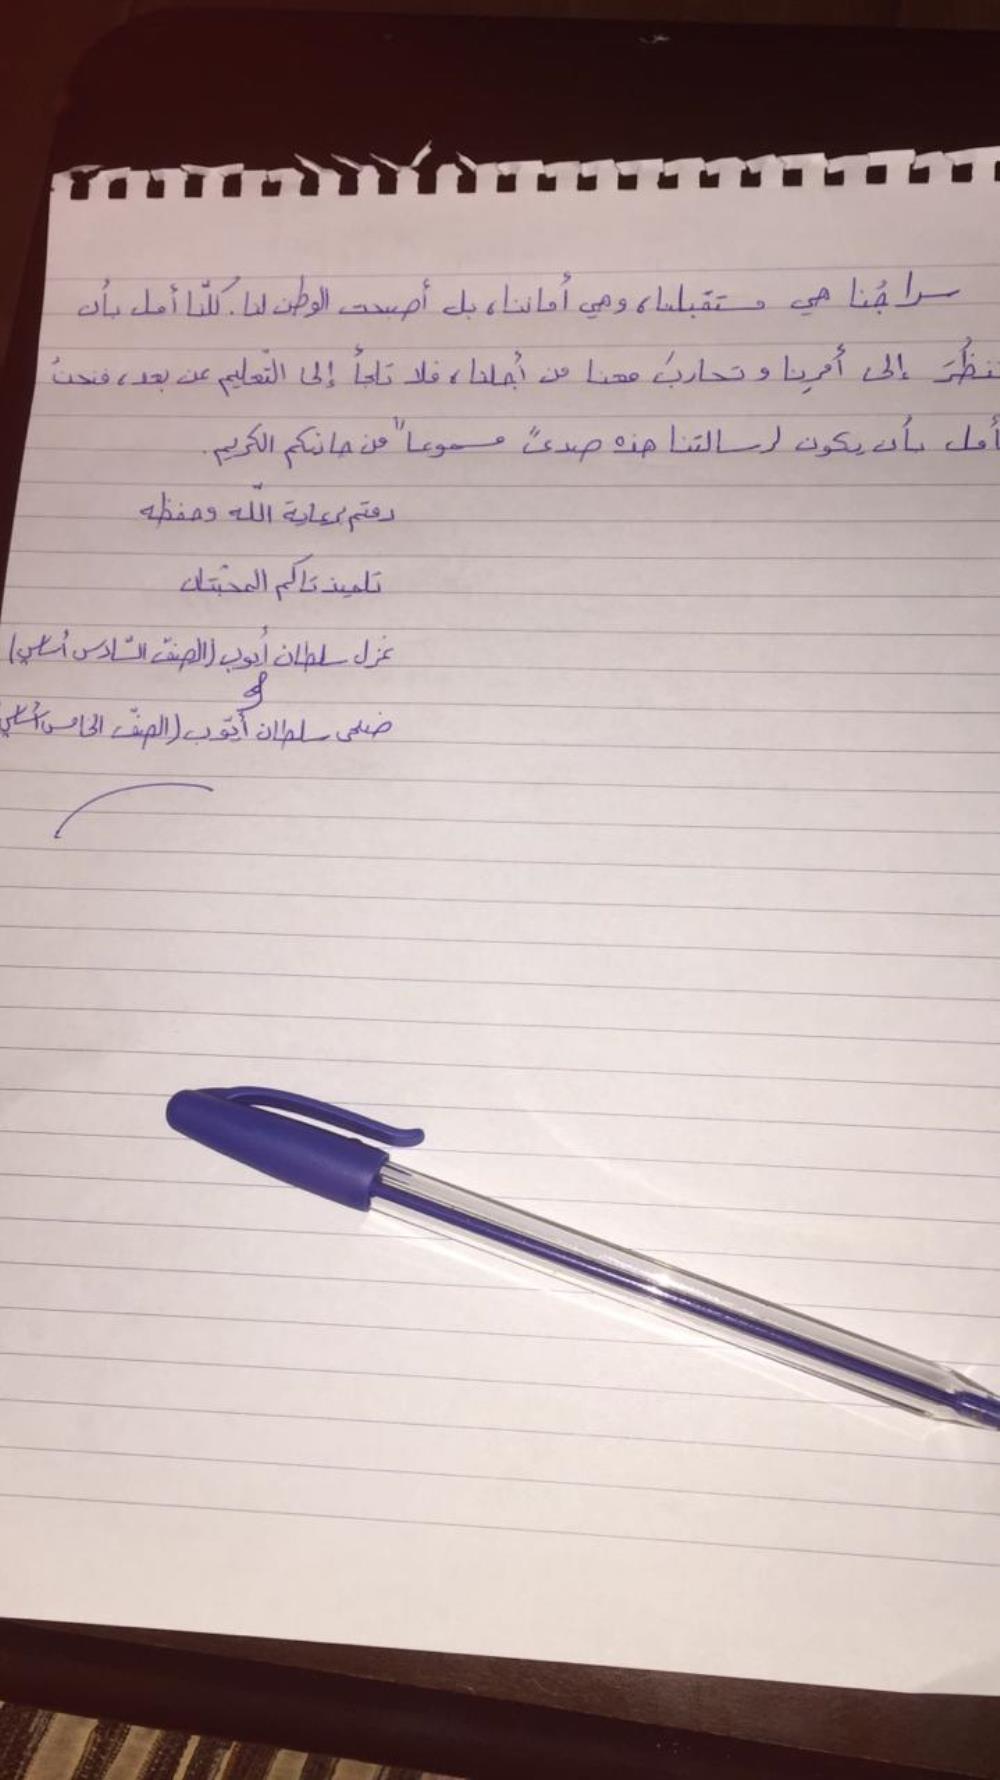 سراجُنا هي مستقبلنا، وهي أماننا، بل أصبحت الوطن لنا. كلّنا أمل بأن
تنظُرَ إلى أمرِنا وتحاربَ معنا من أجلنا، فلا تلجأ إلى التّعليم عن بعد، فنحنُ
أمل بأن يكون لرسالتنا هذه صدىً مسموعاً من جانبكم الكريم.
دمتم برعاية اللّه وحفظه
تلميذتاكم المحبّتان
غزل سلطان أيوب (الصفّ السّادس أساسي)
و
ضحى سلطان أيّوب (الصفّ الخامس أساسي